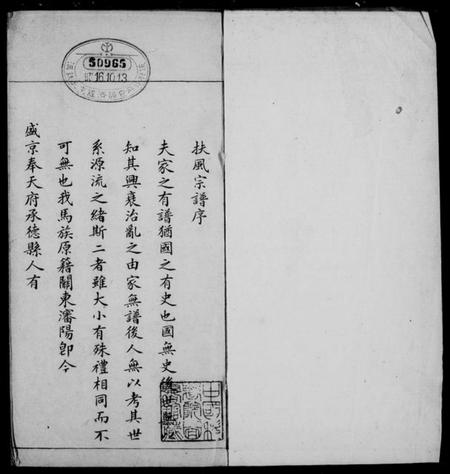 扶風宗譜序
夫家之有譜猶國之有史也國無史後世無
知其興衰治亂之由家無譜後人無以考其世
系源流之緒斯二者雖大小有殊禮相同而不
可無也我馬族原籍關東瀋陽卽今
盛京奉天府承德縣人有
50965
16.10.13